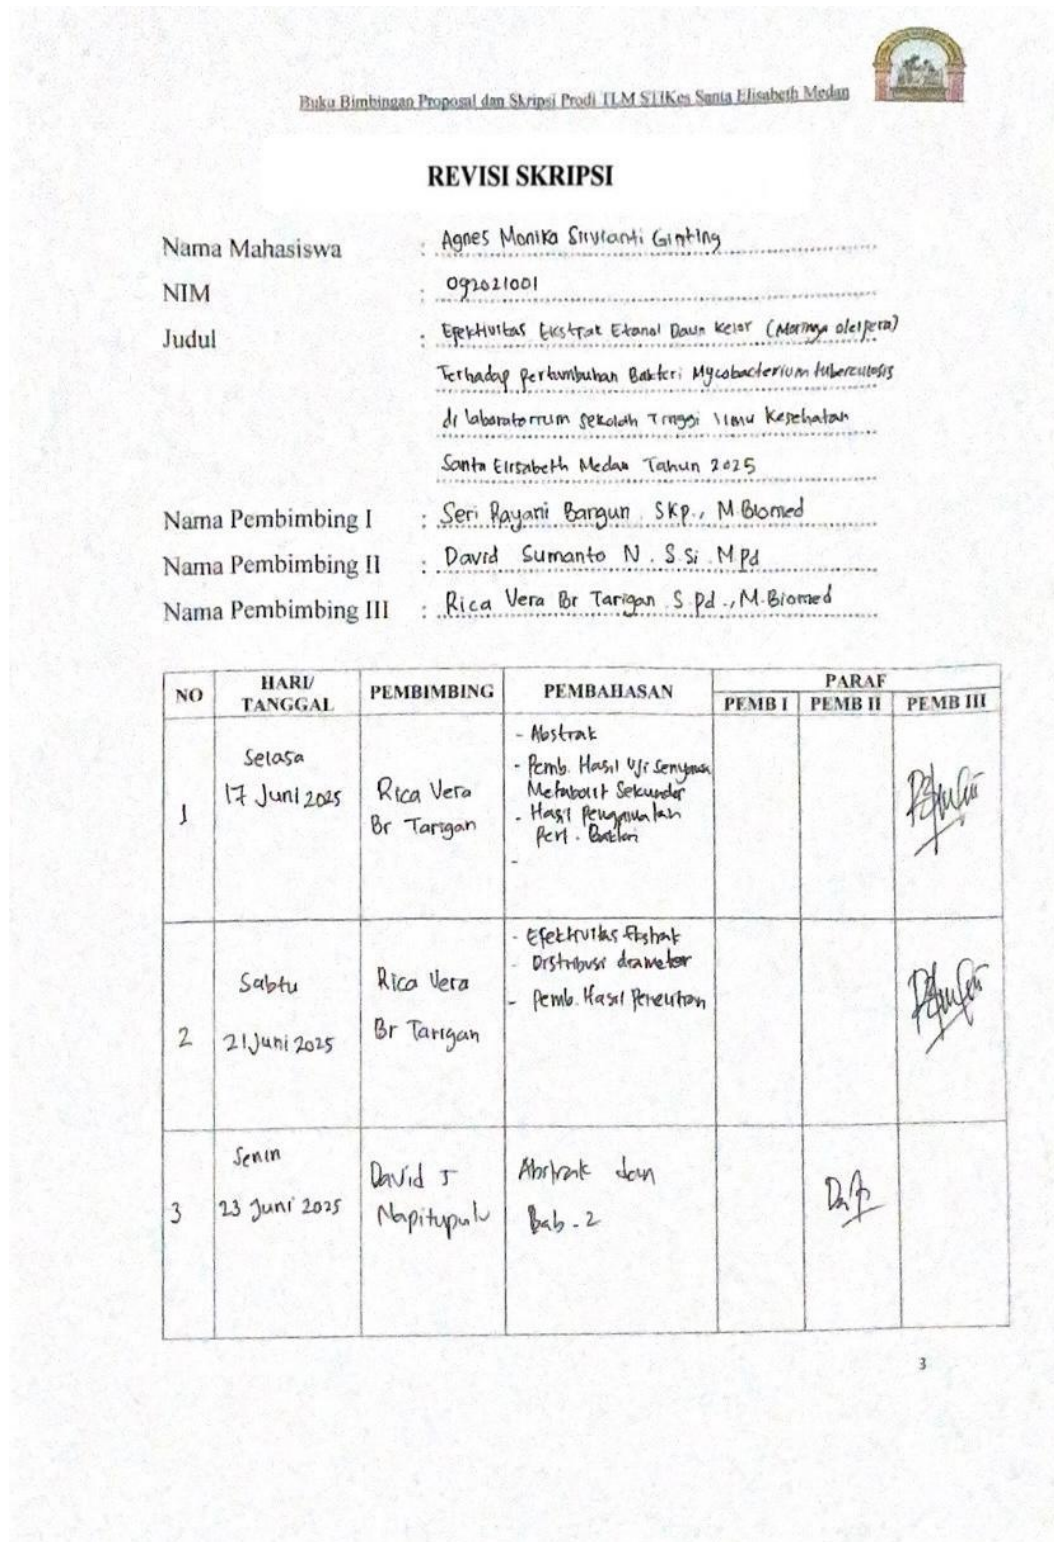 Buku Bimbingan Proposal dan Skripsi Prodi TLM STIKes Santa Elisabeth Medan
REVISI SKRIPSI
Nama Mahasiswa : Agnes Monika Ginting
NIM : 092021001
Judul : Efektivitas Ekstrak Etanol Daun Kelor (Moringa oleifera)
Terhadap Pertumbuhan Bakteri Mycobacterium tuberculosis
di laboratorium Sekolah Tinggi Ilmu Kesehatan
Santa Elisabeth Medan Tahun 2025
Nama Pembimbing I : Seri Rayani Bangun. SKp., M.Biomed
Nama Pembimbing II : David Sumanto N. S.Si. M.Pd
Nama Pembimbing III : Rica Vera Br Tarigan. S.Pd., M.Biomed
NO HARI/ TANGGAL PEMBIMBING PEMBAHASAN PARAF
PEMB I PEMB II PEMB III
1 Selasa 17 Juni 2025 Rica Vera Br Tarigan
- Abstrak
- Pemb. Hasil Uji Senyawa
Metabolit Sekunder
- Hasil Bakteri
-
2 Sabtu 21 Juni 2025 Rica Vera Br Tarigan
- Efektivitas Ekstrak
- Distribusi diameter
- Pemb. Hasil Penelitian
3 Senin 23 Juni 2025 David S Napitupulu
Abstrak dan
Bab - 2
3